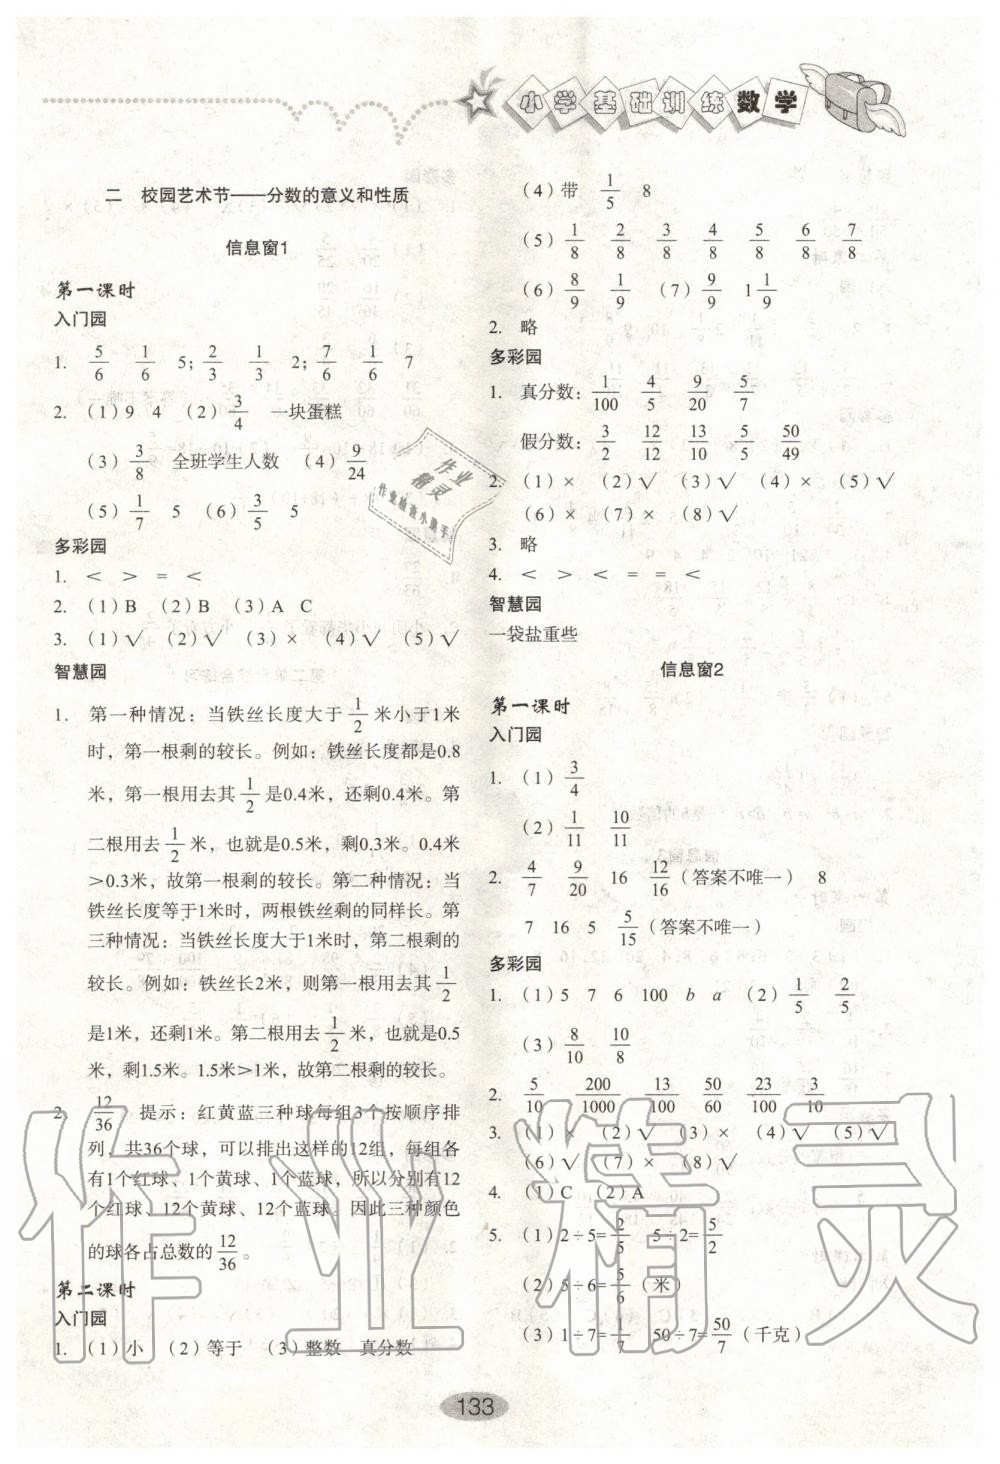 小学基础训练数学
二 校园艺术节——分数的意义和性质
信息窗1
第一课时
入门园
1. 5/6 1/6 5; 2/3 1/3 2; 7/6 1/6 7
2. (1)9 4 (2)3/4 一块蛋糕
(3)3/8 全班学生人数 (4)9/24
(5)1/7 5 (6)3/5 5
多彩园
1. < > = <
2. (1)B (2)B (3)A C
3. (1)√ (2)√ (3)× (4)√ (5)√
智慧园
1. 第一种情况:当铁丝长度大于1/2米小于1米
时,第一根剩的较长。例如:铁丝长度都是0.8
米,第一根用去其1/2是0.4米,还剩0.4米。第
二根用去1/2米,也就是0.5米,剩0.3米。0.4米
>0.3米,故第一根剩的较长。第二种情况:当
铁丝长度等于1米时,两根铁丝剩的同样长。第
三种情况:当铁丝长度大于1米时,第二根剩的
较长。例如:铁丝长2米,则第一根用去其1/2
是1米,还剩1米。第二根用去1/2米,也就是0.5
米,剩1.5米。1.5米>1米,故第二根剩的较长。
2. 12/36 提示:红黄蓝三种球每组3个按顺序排
列,共36个球,可以排出这样的12组,每组各
有1个红球、1个黄球、1个蓝球,所以分别有12
个红球、12个黄球、12个蓝球。因此三种颜色
的球各占总数的12/36。
第二课时
入门园
1. (1)小 (2)等于 (3)整数 真分数
(4)带 1/5 8
(5)1/8 2/8 3/8 4/8 5/8 6/8 7/8
(6)8/9 1/9 (7)9/9 1 1/9
2. 略
多彩园
1. 真分数:1/100 4/5 9/20 5/7
假分数:3/2 12/12 13/10 5/5 50/49
2. (1)× (2)√ (3)√ (4)× (5)√
(6)× (7)× (8)√
3. 略
4. < > < = = <
智慧园
一袋盐重些
信息窗2
第一课时
入门园
1. (1)3/4
(2)1/11 10/11
2. 4/7 9/20 16 12/16(答案不唯一) 8
7 16 5 5/15(答案不唯一)
多彩园
1. (1)5 7 6 100 b a (2)1/5 2/5
(3)8/10 10/8
2. 5/10 200/1000 13/100 50/60 23/100 3/10
3. (1)× (2)√ (3)× (4)√ (5)√
(6)√ (7)× (8)√
4. (1)C (2)A
5. (1)2÷5=2/5 5÷2=5/2
(2)5÷6=5/6(米)
(3)1÷7=1/7 50÷7=50/7(千克)
133
作业精灵
作业
精灵
作业检查小助手